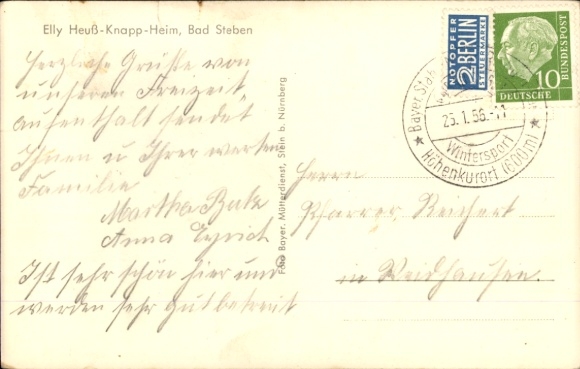 Elly Heuß-Knapp-Heim, Bad Steben
Herzliche Grüße von
unserem Freizeit„
aufenthalt sendet
Ihnen u Ihrer werten
Familie
Martha
Anna
Ist sehr schön hier und
werden sehr gut betreit
Foto Bayer. Mütterdienst, Stein b. Nürnberg
NOTOPFER
2 BERLIN
STEUERMARKE
DEUTSCHE
BUNDESPOST
10
Bayer.
25.1.56.-11
Wintersport
Höhenkurort (600m)
Herrn
Pfarrer Reichert
in Weidhausen.